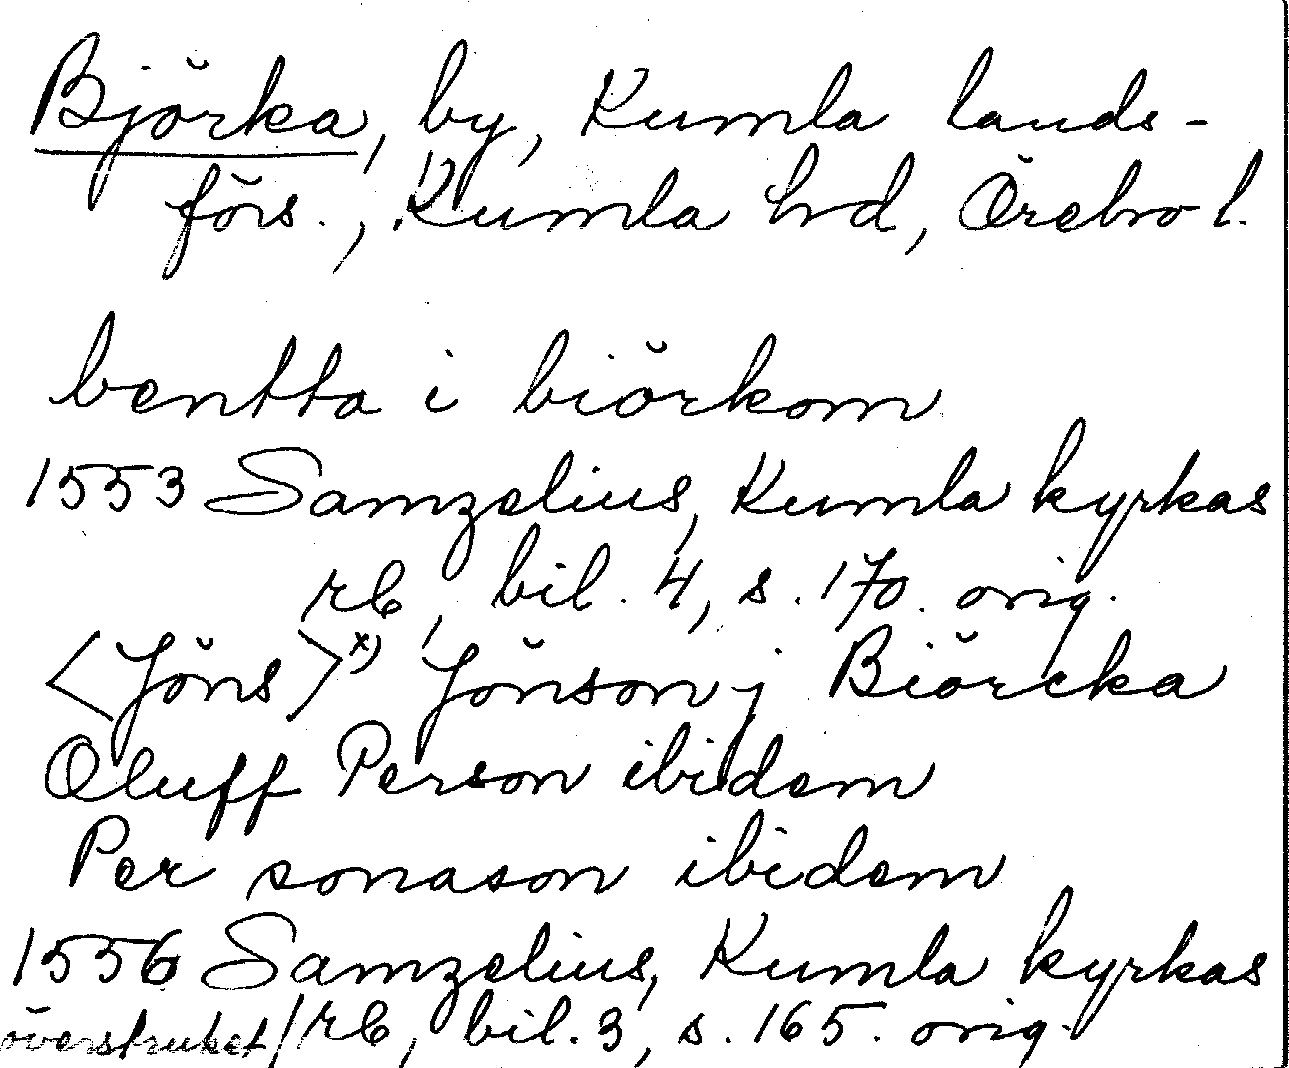 Björka, by, Kumla lands-
förs., Kumla hrd, Örebro l.
bentta i biörkom
1553 Samzelius, Kumla kyrkas
rb, bil. 4, s. 170. orig.
<Jöns>x) Jönson j Biörcka
Oluff Person ibidem
Per sonason ibidem
1556 Samzelius, Kumla kyrkas
överstruket/ rb, bil. 3, s. 165. orig.